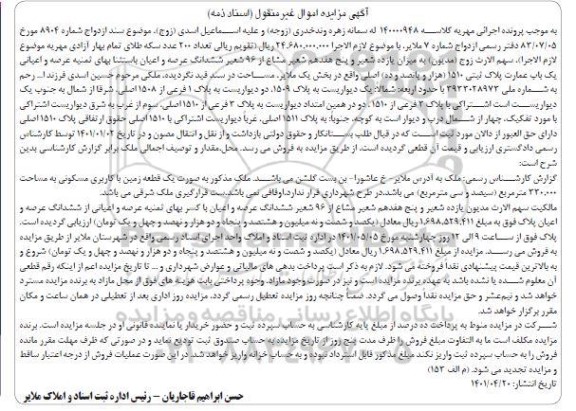 آگهی مزایده اموال غیر منقول (اسناد ذمه)
به موجب پرونده اجرائی مهریه کلاسه ۱۴۰۰۰۰۹۴۸ له سمانه زهره وندخدری (زوجه) و علیه اسماعیل اسدی (زوج)، موضوع سند ازدواج شماره ۸۹۰۴ مورخ
۸۳/۰۷/۰۵ دفتر رسمی ازدواج شماره ۷ ملایر، با موضوع لازم الاجرا ۲۴،۶۸۰،۰۰۰،۰۰۰ ریال (تقویم ریالی تعداد ۲۰۰ عدد سکه طلای تمام بهار آزادی مهریه موضوع
لازم الاجرا)، سهم الارث زوج (مدیون) به میزان یازده شعیر و پنج هفدهم شعیر مشاع از ۹۶ شعیر ششدانگ عرصه و اعیان باستثنا بهای ثمنیه عرصه و اعیانی
یک باب عمارت پلاک ثبتی ۱۵۱۰ (هزار و پانصد و ده) اصلی واقع در بخش یک ملایر، مساحت در سند قید نگردیده، ملکی مرحوم حسین اسدی فرزند ... رحم
به شماره ملی ۳۹۳۳۰۲۸۹۷۳ با حدود اربعه: شمالا: یک دیواریست به پلاک ۱۵۰۹، دو دیواریست به پلاک ۱ فرعی از ۱۵۰۸ اصلی. شرقا: از شمال به جنوب یک
دیواریست است اشتراکی با پلاک ۲ فرعی از ۱۵۱۰، دو در همین امتداد دیواریست به پلاک ۳ فرعی از ۱۵۱۰ اصلی، سوم از غرب به شرق دیواریست اشتراکی
با مورد تفکیک، چهار از شمال درب و دیوار است به کوچه. جنوبا: به پلاک ۱۵۱۱ اصلی. غربا: دیواریست اشتراکی با ۱۵۱۰ اصلی حقوق ارتفاقی پلاک ۱۵۱۰ اصلی
دارای حق العبور از دالان مورد ثبت است که در قبال طلب بستانکار و حقوق دولتی بازداشت و از نقل و انتقال مصون و در تاریخ ۱۴۰۱/۰۱/۰۲ توسط کارشناس
رسمی دادگستری ارزیابی و قیمت آن قطعی گردیده است، از طریق مزایده به فروش می رسد. محل،مقدار و توصیف اجمالی ملک برابر گزارش کارشناسی بدین
شرح است:
گزارش کارشناس رسمی: ملک به آدرس ملایر - خ عاشورا - بن بست گلشن می باشد. ملک مذکور به صورت یک قطعه زمین با کاربری مسکونی به مساحت
۳۳۰،۰۰ مترمربع (سیصد و سی مترمربع) می باشد.در طرح شهرداری قرار ندارد.اوقافی نمی باشد. پست قرارگیری ملک شرقی می باشد.
مالکیت سهم الارث مدیون یازده شعیر و پنج هفدهم شعیر مشاع از ۹۶ شعیر ششدانگ عرصه و اعیان با کسر بهای ثمنیه عرصه و اعیانی از ششدانگ عرصه و
اعیان پلاک فوق به مبلغ ۱،۶۹۸،۵۲۹،۴۱۱ ریال معادل (یکصد و شصت و نه میلیون و هشتصد و پنجاه و دو هزار و نهصد و چهل و یک تومان) ارزیابی گردیده است.
پلاک فوق از ساعت ۹ الی ۱۲ روز چهارشنبه مورخ ۱۴۰۱/۰۵/۰۵ در اداره ثبت اسناد و املاک واحد اجرای اسناد رسمی واقع در شهرستان ملایر از طریق مزایده
به فروش می رسد. مزایده از مبلغ ۱،۶۹۸،۵۲۹،۴۱۱ ریال معادل (یکصد و شصت و نه میلیون و هشتصد و پنجاه و دو هزار و نهصد و چهل و یک تومان) شروع و
به بالاترین قیمت پیشنهادی نقدا فروخته می شود. لازم به ذکر است پرداخت بدهی های مالیاتی و عوارض شهرداری و ... تا تاریخ مزایده اعم از اینکه رقم قطعی
آن معلوم شده یا نشده باشد به عهده برنده مزایده است و نیز در صورت وجود مازاد، وجوه پرداختی بابت هزینه های فوق از محل مازاد به برنده مزایده مسترد
خواهد شد و نیم‌عشر و حق مزایده نقدا وصول می گردد. ضمنا چنانچه روز مزایده تعطیل رسمی گردد، مزایده روز اداری بعد از تعطیلی در همان ساعت و مکان
مقرر برگزار خواهد شد.
شرکت در مزایده منوط به پرداخت ده درصد از مبلغ پایه کارشناسی به حساب سپرده ثبت و حضور خریدار یا نماینده قانونی او در جلسه مزایده است. برنده
مزایده مکلف است ما به التفاوت مبلغ فروش را ظرف مدت پنج روز از تاریخ مزایده به حساب صندوق ثبت تودیع نماید و در صورتی که ظرف مهلت مقرر مانده
فروش را به حساب سپرده ثبت واریز نکند مبلغ مذکور قابل استرداد نبوده و به حساب خزانه واریز خواهد شد. در این صورت عملیات فروش از درجه اعتبار ساقط
و مزایده تجدید می شود. (م الف ۱۵۳)
تاریخ انتشار: ۱۴۰۱/۰۴/۲۰
حسن ابراهیم قاجاریان - رئیس اداره ثبت اسناد و املاک ملایر